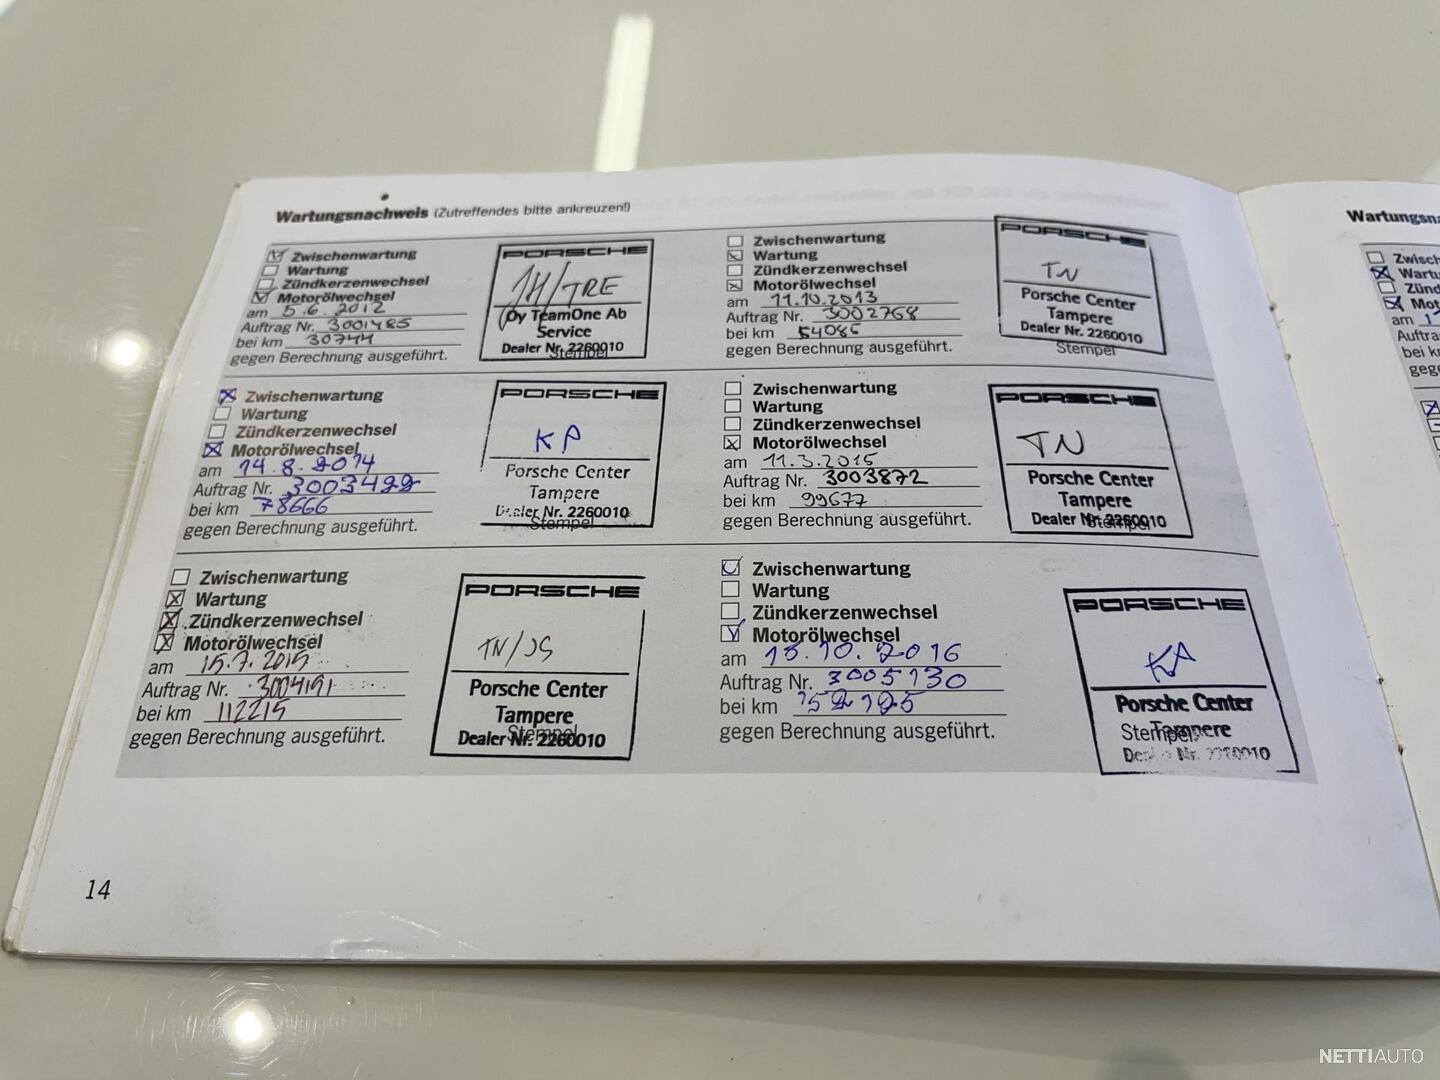 Wartungsnachweis (Zutreffendes bitte ankreuzen!)
Zwischenwartung
Wartung
Zündkerzenwechsel
Motorölwechsel
am 5.6.2012
Auftrag Nr. 3001485
bei km 30744
gegen Berechnung ausgeführt.
PORSCHE
JH/TRE
Oy TeamOne Ab
Service
Dealer Nr. 2260010
Stempel
Zwischenwartung
Wartung
Zündkerzenwechsel
Motorölwechsel
am 11.10.2013
Auftrag Nr. 3002768
bei km 54086
gegen Berechnung ausgeführt.
PORSCHE
TN
Porsche Center
Tampere
Dealer Nr. 2260010
Stempel
Zwischenwartung
Wartung
Zündkerzenwechsel
Motorölwechsel
am 14.8.2014
Auftrag Nr. 3003422
bei km 78666
gegen Berechnung ausgeführt.
PORSCHE
KP
Porsche Center
Tampere
Dealer Nr. 2260010
Stempel
Zwischenwartung
Wartung
Zündkerzenwechsel
Motorölwechsel
am 11.3.2015
Auftrag Nr. 3003872
bei km 99677
gegen Berechnung ausgeführt.
PORSCHE
TN
Porsche Center
Tampere
Dealer Nr. 2260010
Stempel
Zwischenwartung
Wartung
Zündkerzenwechsel
Motorölwechsel
am 15.7.2015
Auftrag Nr. 3004191
bei km 112215
gegen Berechnung ausgeführt.
PORSCHE
TN/JS
Porsche Center
Tampere
Stempel
Dealer Nr. 2260010
Zwischenwartung
Wartung
Zündkerzenwechsel
Motorölwechsel
am 13.10.2016
Auftrag Nr. 3005130
bei km 152125
gegen Berechnung ausgeführt.
PORSCHE
Porsche Center
Tampere
Stempel
Dealer Nr. 2260010
14
Wartungsna
Zwisch
Wartu
Zünd
Mot
am 1
Auftra
bei k
gege
NETTIAUTO